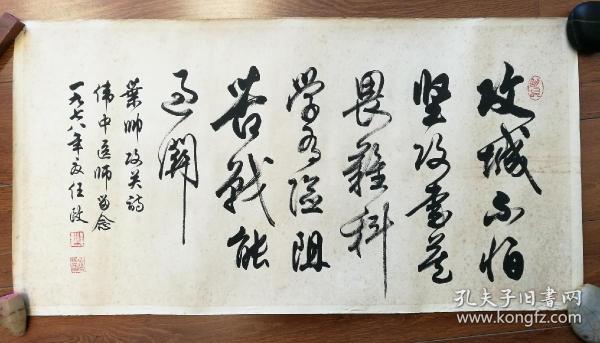 攻城不怕
坚攻书莫
畏难科
学有险阻
苦战能
过关
叶帅攻关诗
伟中医师留念
一九七八年夏任政
孔夫子旧书网
www.kongfz.com